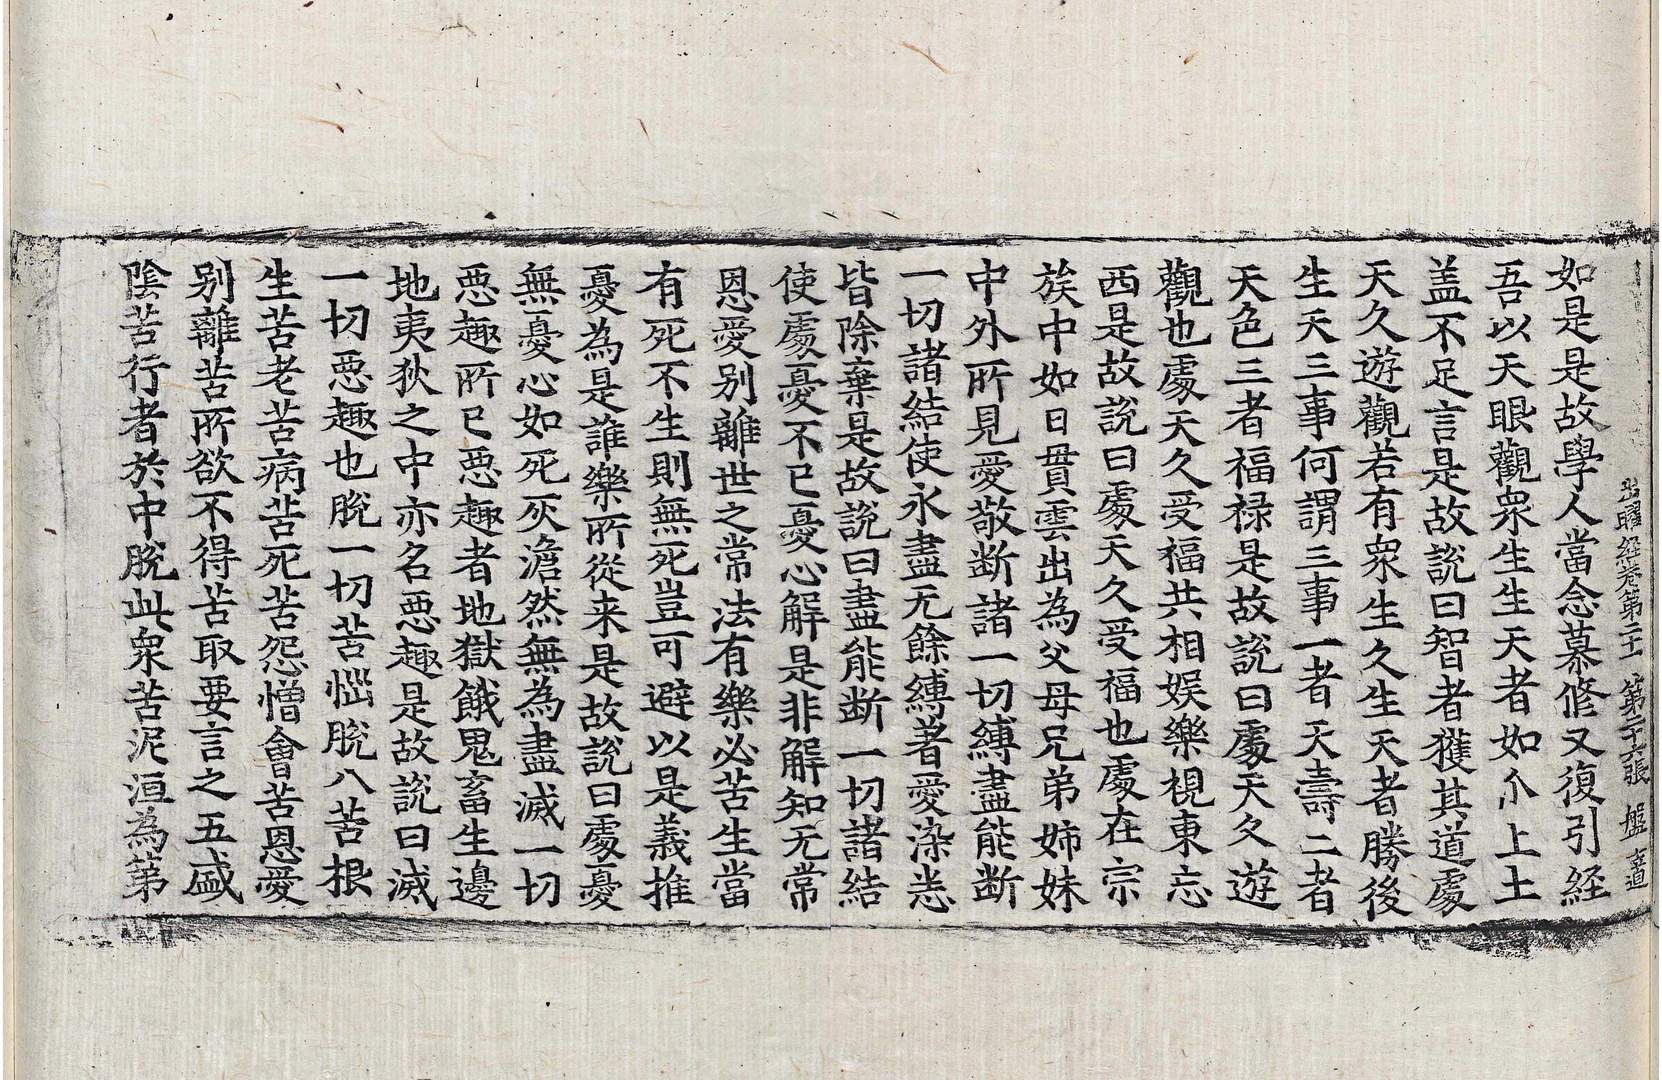 出曜経巻第二十一 第二十六張 盤 道
如是是故學人當念慕修又復引経
吾以天眼觀衆生生天者如尒上土
盖不足言是故説曰智者獲其道處
天久遊觀若有衆生久生天者勝後
生天三事何謂三事一者天壽二者
天色三者福禄是故説曰處天久遊
觀也處天久受福共相娯樂視東忘
西是故説曰處天久受福也處在宗
族中如日貫雲出為父母兄弟姉妹
中外所見愛敬断諸一切縛盡能断
一切諸結使永盡无餘縛著愛染恙
皆除棄是故説曰盡能断一切諸結
使處憂不已憂心解是非解知无常
恩愛別離世之常法有樂必苦生當
有死不生則無死豈可避以是義推
憂為是誰樂所從来是故説曰處憂
無憂心如死灰澹然無為盡滅一切
悪趣所已悪趣者地獄餓鬼畜生邊
地夷狄之中亦名悪趣是故説曰滅
一切悪趣也脫一切苦惱脫八苦根
生苦老苦病苦死苦怨憎會苦恩愛
別離苦所欲不得苦取要言之五盛
陰苦行者於中脫此衆苦泥洹為第